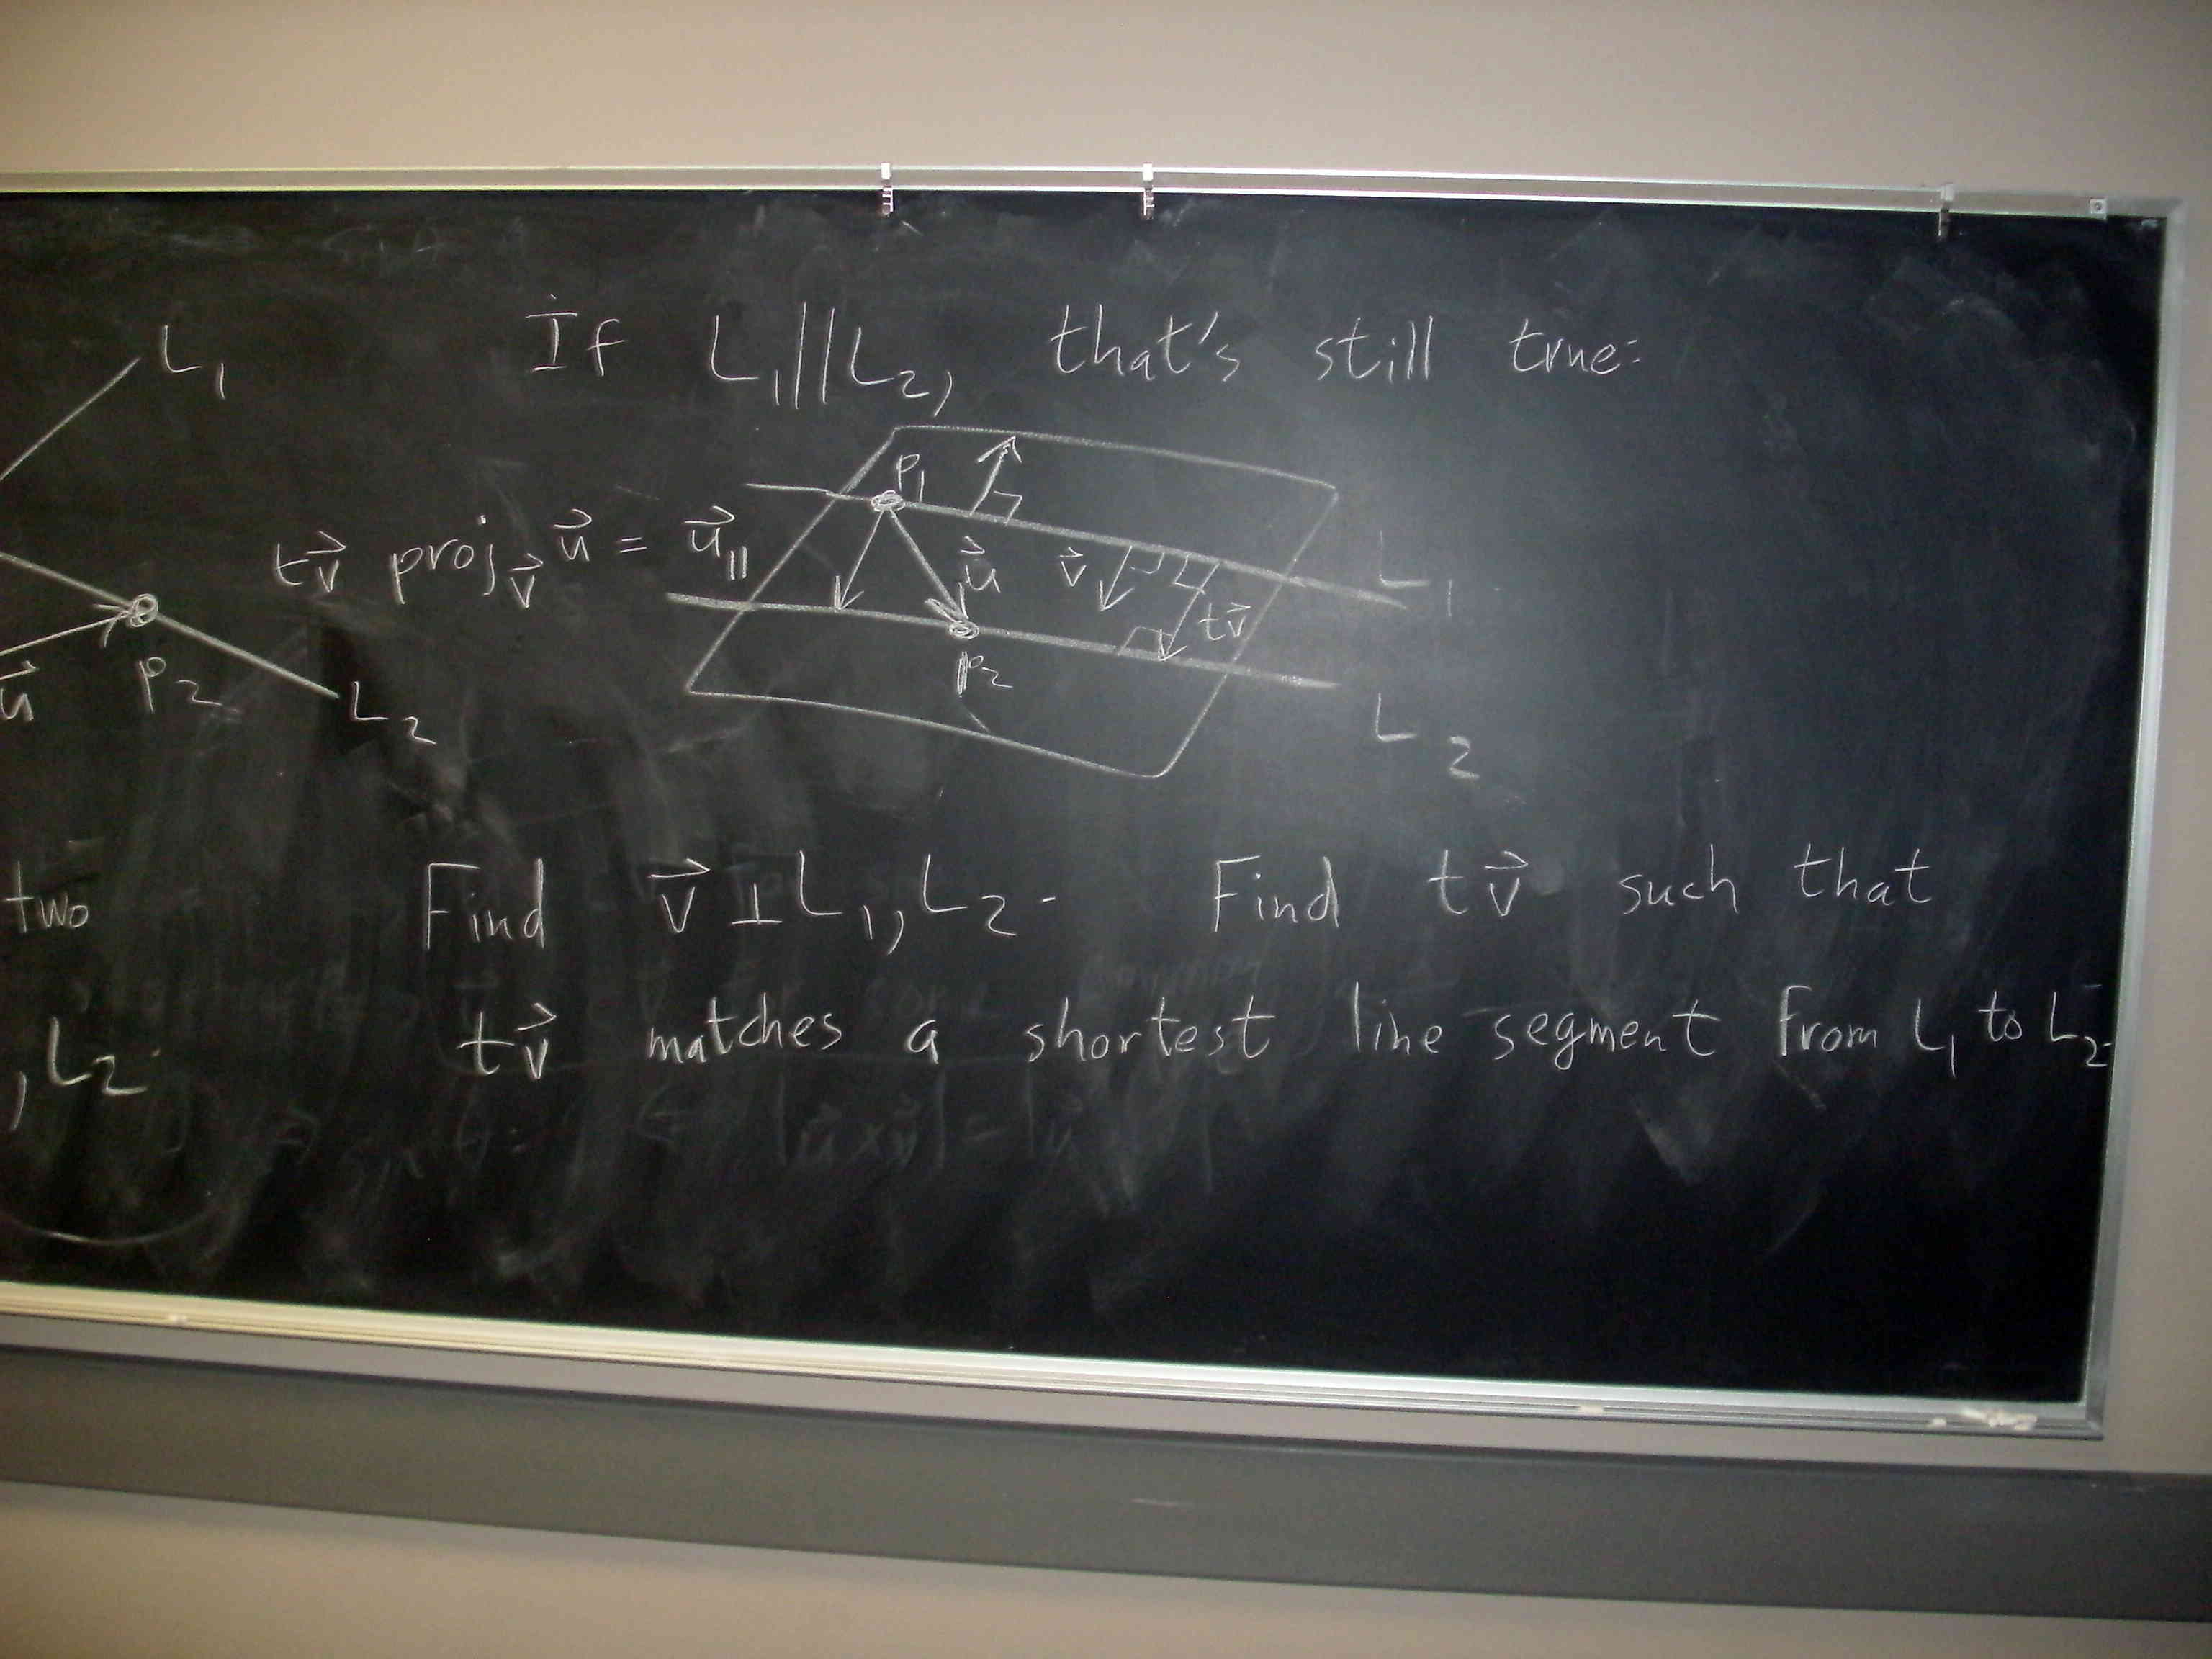 If L₁||L₂, that's still true:
L₁
P₁
tv⃗ proj_v⃗ u⃗ = u⃗_||
u⃗
v⃗
L₁
tv⃗
u⃗
P₂
L₂
P₂
L₂
two
Find v⃗ ⊥ L₁, L₂. Find tv⃗ such that
, L₂.
tv⃗ matches a shortest line segment from L₁ to L₂.
|u⃗ x v⃗| = |u⃗